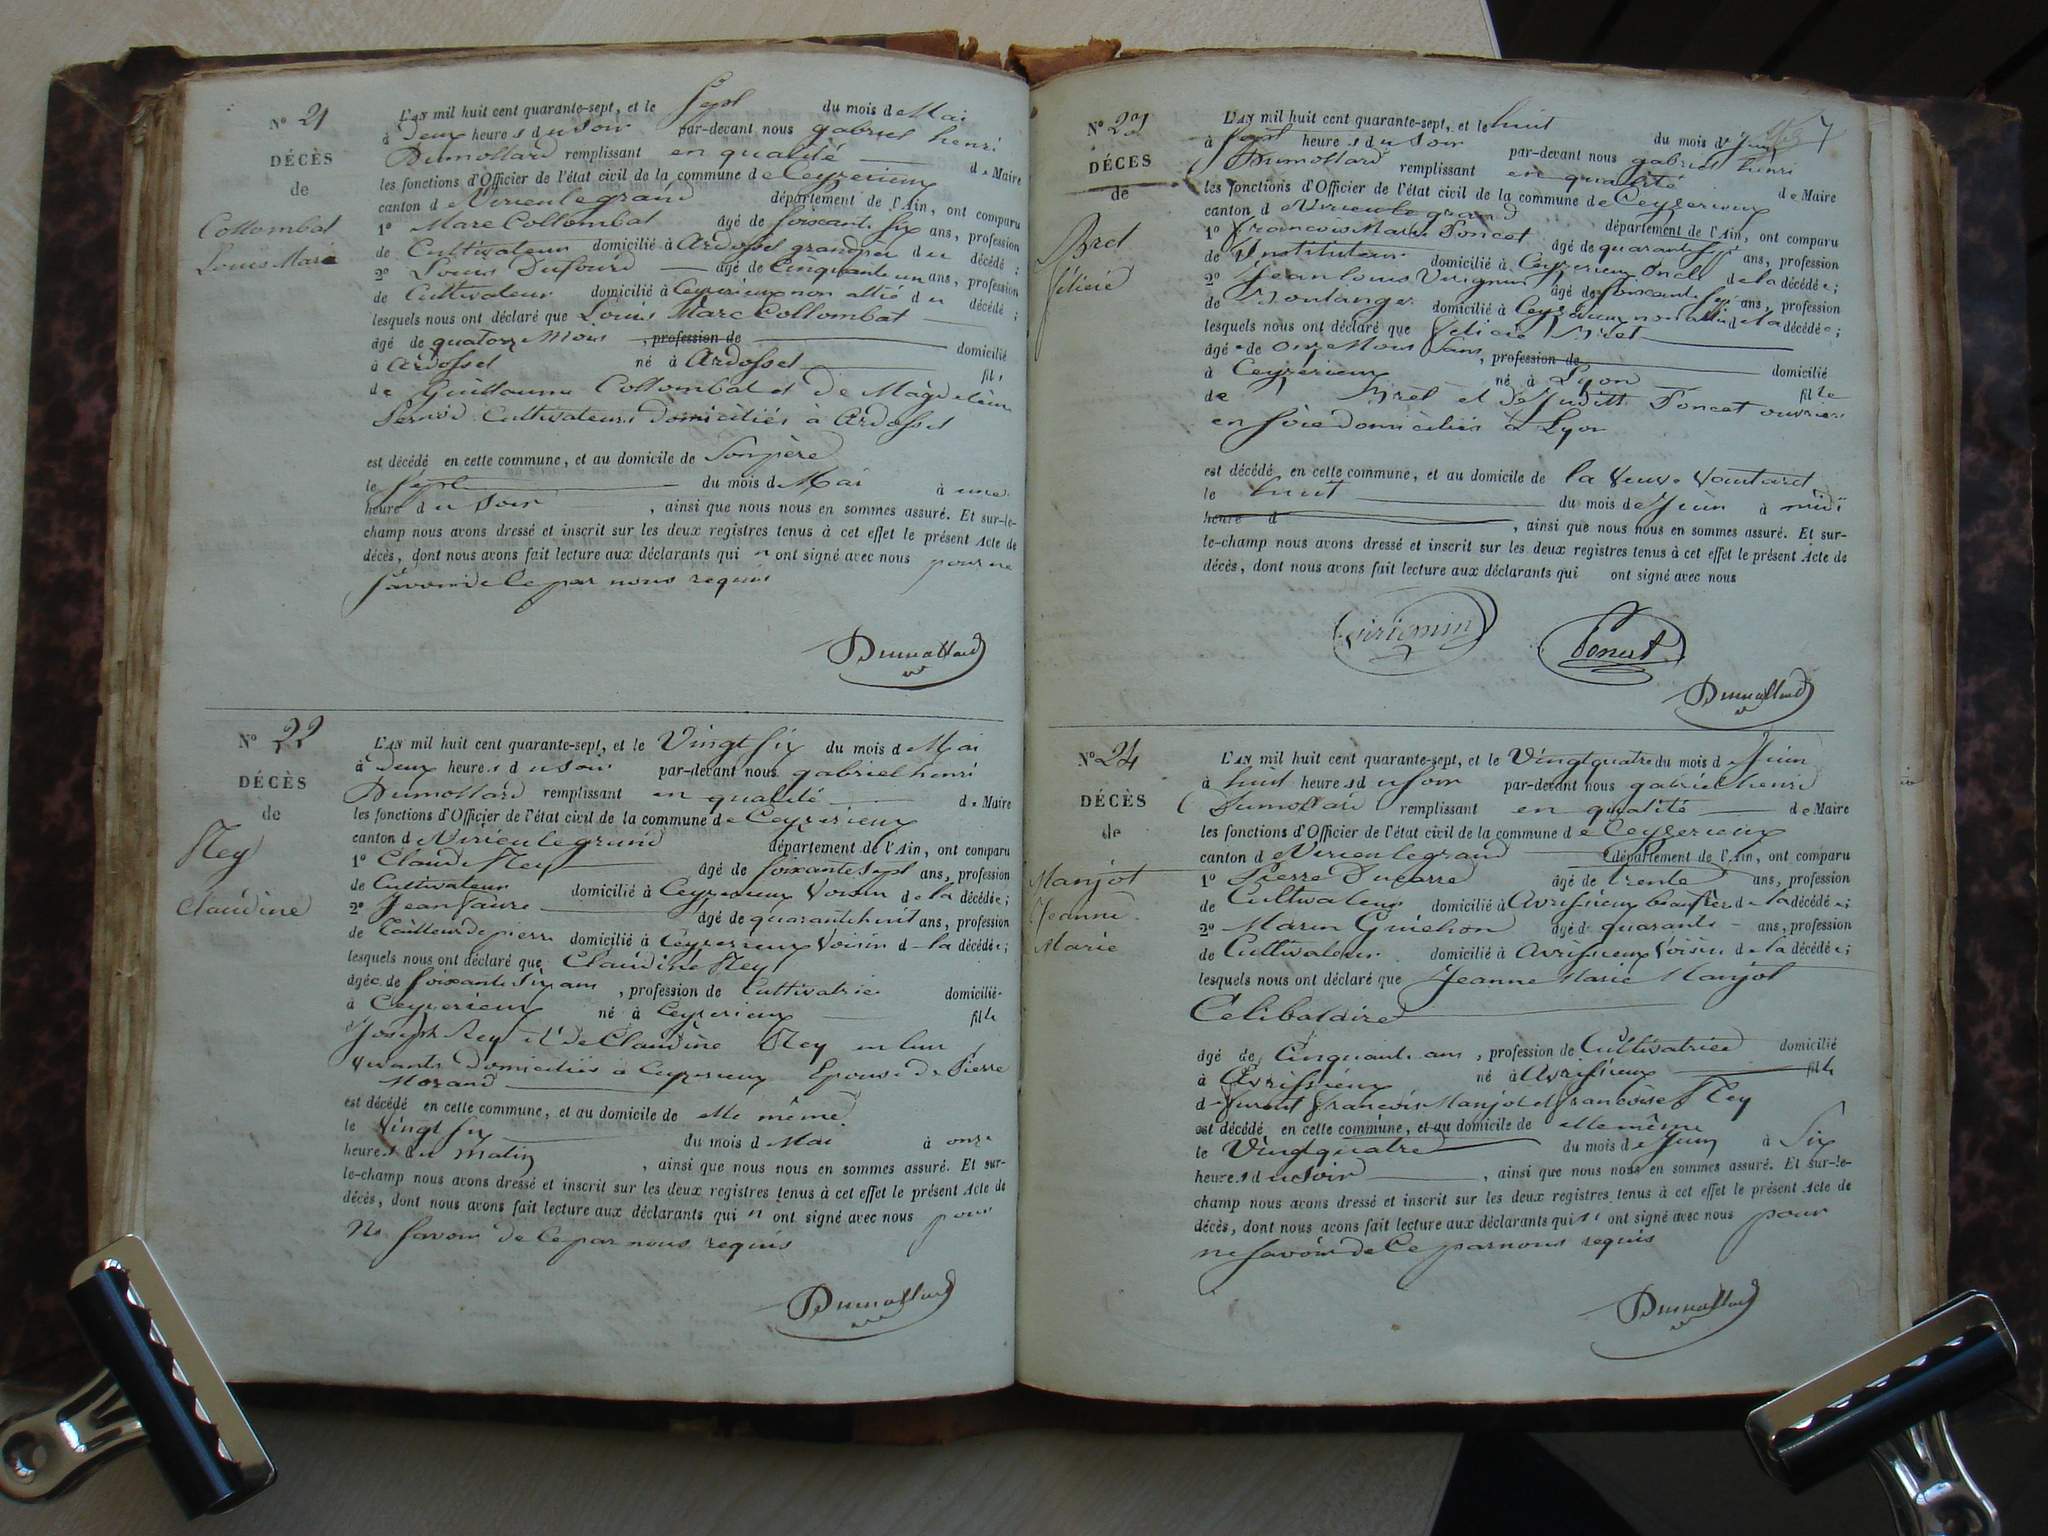 N° 21
DÉCÈS
de
Collombat
Louis Marc
L'AN mil huit cent quarante-sept, et le sept du mois de Mai
à deux heures du soir par-devant nous gabriel henri
Dumollard remplissant en qualité de Maire
les fonctions d'Officier de l'état civil de la commune de Ceyzerieux
canton de Virieu le grand département de l'Ain, ont comparu
1° Marc Collombat âgé de soixante six ans, profession
de Cultivateur domicilié à Ardosset grand père du décédé;
2° Louis Dufour âgé de Cinquante un ans, profession
de Cultivateur domicilié à Ceyzerieux non allié du décédé;
lesquels nous ont déclaré que Louis Marc Collombat
âgé de quatorze Mois, profession de domicilié
à Ardosset né à Ardosset fils
de Guillaume Collombat et de Magdeleine
Cultivateurs domiciliés à Ardosset
est décédé en cette commune, et au domicile de Son père
le sept du mois de Mai à une
heure du soir, ainsi que nous nous en sommes assuré. Et sur-le-
champ nous avons dressé et inscrit sur les deux registres tenus à cet effet le présent Acte de
décès, dont nous avons fait lecture aux déclarants qui n'ont signé avec nous pour ne
savoir de ce par nous requis
Dumollard
N° 22
DÉCÈS
de
Rey
Claudine
L'AN mil huit cent quarante-sept, et le Vingt six du mois de Mai
à deux heures du soir par-devant nous gabriel henri
Dumollard remplissant en qualité de Maire
les fonctions d'Officier de l'état civil de la commune de Ceyzerieux
canton de Virieu le grand département de l'Ain, ont comparu
1° Claude Rey âgé de soixante sept ans, profession
de Cultivateur domicilié à Ceyzerieux Voisin de la décédée;
2° Jean Favre âgé de quarante huit ans, profession
de tailleur de pierre domicilié à Ceyzerieux Voisin de la décédée;
lesquels nous ont déclaré que Claudine Rey
âgée de soixante six ans, profession de Cultivatrice domicilié
à Ceyzerieux né à Ceyzerieux fille
Joseph Rey et de Claudine Rey en leur
vivants domiciliés à Ceyzerieux Epouse de Pierre
Morand
est décédé en cette commune, et au domicile de elle même
le Vingt six du mois de Mai à onze
heures du matin, ainsi que nous nous en sommes assuré. Et sur-
le-champ nous avons dressé et inscrit sur les deux registres tenus à cet effet le présent Acte de
décès, dont nous avons fait lecture aux déclarants qui n'ont signé avec nous pour
ne savoir de ce par nous requis
Dumollard
N° 23
DÉCÈS
de
Bret
félicie
L'AN mil huit cent quarante-sept, et le huit du mois de Juin
à sept heures du soir par-devant nous gabriel henri
Dumollard remplissant en qualité de Maire
les fonctions d'Officier de l'état civil de la commune de Ceyzerieux
canton de Virieu le grand département de l'Ain, ont comparu
1° francois Marie Poncet âgé de quarante sept ans, profession
de Instituteur domicilié à Ceyzerieux oncle de la décédée;
2° Jean louis âgé de soixante sept ans, profession
de Boulanger domicilié à Ceyzerieux non allié de la décédée;
lesquels nous ont déclaré que félicie Bret
âgé de onze Mois, profession de domicilié
à Ceyzerieux né à Lyon fille
de Bret et de Judith Poncet ouvriers
en soie domiciliés à Lyon
est décédé en cette commune, et au domicile de la Veuve
le huit du mois de Juin à midi
heure d, ainsi que nous nous en sommes assuré. Et sur-
le-champ nous avons dressé et inscrit sur les deux registres tenus à cet effet le présent Acte de
décès, dont nous avons fait lecture aux déclarants qui ont signé avec nous
Poncet
Dumollard
N° 24
DÉCÈS
de
Manjot
Jeanne
Marie
L'AN mil huit cent quarante-sept, et le Vingt quatre du mois de Juin
à huit heures du soir par-devant nous gabriel henri
Dumollard remplissant en qualité de Maire
les fonctions d'Officier de l'état civil de la commune de Ceyzerieux
canton de Virieu le grand département de l'Ain, ont comparu
1° Pierre Ducarre âgé de trente ans, profession
de Cultivateur domicilié à Avrissieux beau frère de la décédée;
2° Marin Guichon âgé de quarante ans, profession
de Cultivateur domicilié à Avrissieux Voisin de la décédée;
lesquels nous ont déclaré que Jeanne Marie Manjot
Célibataire
âgé de Cinquante ans, profession de Cultivatrice domicilié
à Avrissieux né à Avrissieux fille
de furent francois Manjot et francoise Rey
est décédé en cette commune, et au domicile de elle même
le Vingt quatre du mois de Juin à Six
heures du soir, ainsi que nous nous en sommes assuré. Et sur-le-
champ nous avons dressé et inscrit sur les deux registres tenus à cet effet le présent Acte de
décès, dont nous avons fait lecture aux déclarants qui n'ont signé avec nous pour
ne savoir de ce par nous requis
Dumollard